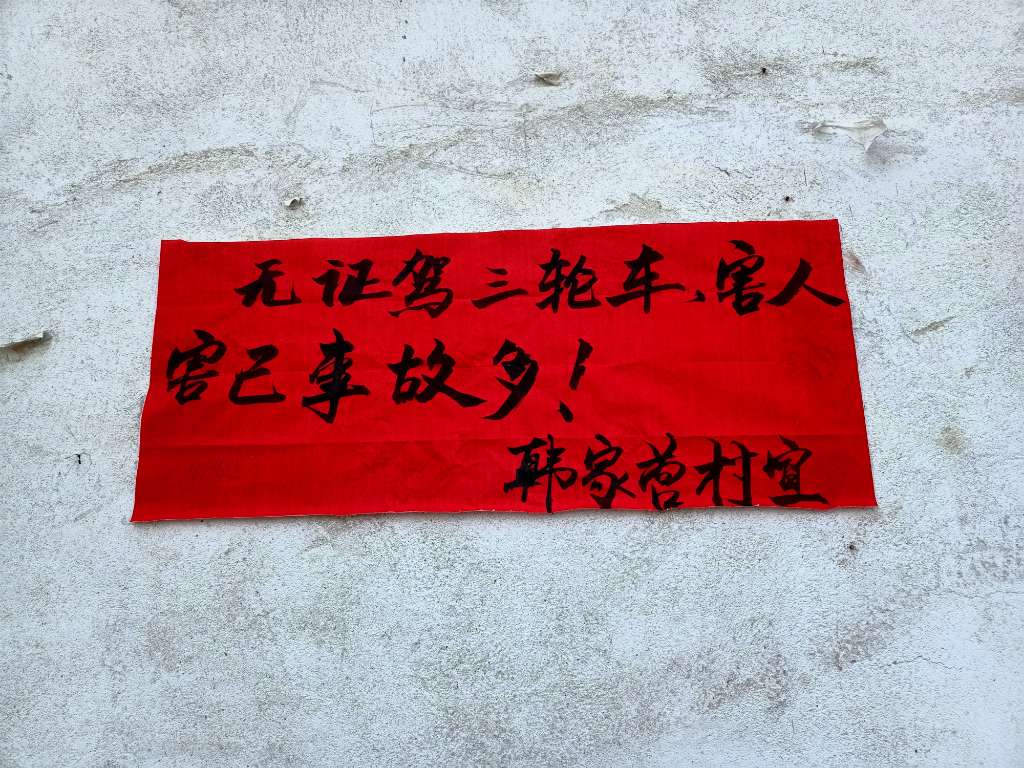 无证驾三轮车、害人
害己事故多！
韩家营村宣